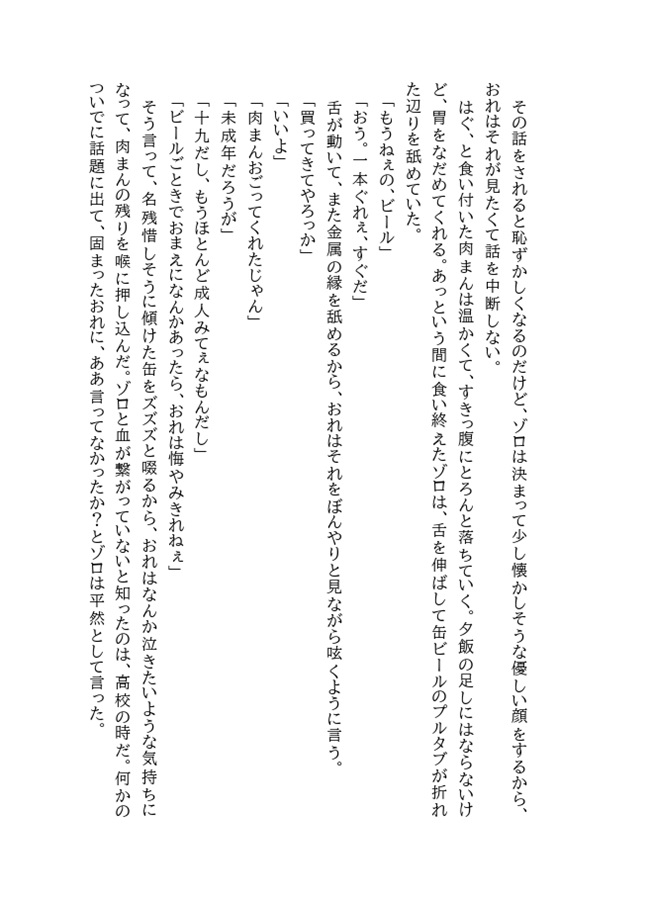 その話をされると恥ずかしくなるのだけど、ゾロは決まって少し懐かしそうな優しい顔をするから、
おれはそれが見たくて話を中断しない。
はぐ、と食い付いた肉まんは温かくて、すきっ腹にとろんと落ちていく。夕飯の足しにはならないけ
ど、胃をなだめてくれる。あっという間に食い終えたゾロは、舌を伸ばして缶ビールのプルタブが折れ
た辺りを舐めていた。
「もうねぇの、ビール」
「おう。一本ぐれぇ、すぐだ」
舌が動いて、また金属の縁を舐めるから、おれはそれをぼんやりと見ながら呟くように言う。
「買ってきてやろっか」
「いいよ」
「肉まんおごってくれたじゃん」
「未成年だろうが」
「十九だし、もうほとんど成人みてぇなもんだし」
「ビールごときでおまえになんかあったら、おれは悔やみきれねぇ」
そう言って、名残惜しそうに傾けた缶をズズズと啜るから、おれはなんか泣きたいような気持ちに
なって、肉まんの残りを喉に押し込んだ。ゾロと血が繋がっていないと知ったのは、高校の時だ。何かの
ついでに話題に出て、固まったおれに、ああ言ってなかったか？とゾロは平然として言った。